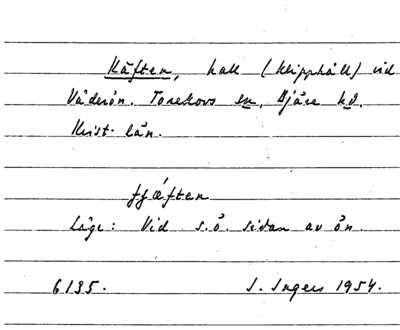 Käften, hall (klipphäll) vid
Väderön. Torekovs sn. Bjäre hd.
Krist. län.
ʃʃæ´ften
Läge: Vid s.ö. sidan av ön.
6135. S. Ingers 1954.